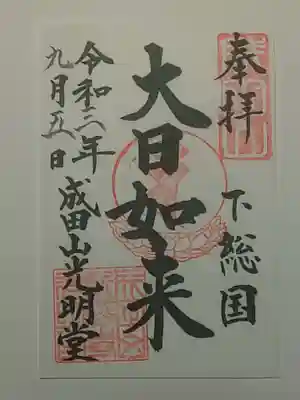 奉拝
下総国
大日如来
令和二年
九月五日
成田山光明堂